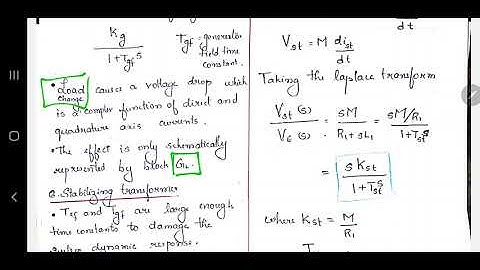 Kg
1+Tgf s
Tgf = generator
field time
constant.
• Load change causes a voltage drop which
is a complex function of direct and
quadrature axis currents.
• The effect is only schematically
represented by block GL.
6. Stabilizing transformer
• Tes and Tgf are large enough
time constants to damage the
dynamic response.
dt
Vst = M dist
dt
Taking the laplace transform
Vst(s) = sM = sM/R1
Vt(s) R1+sL1 1+Tst s
= sKst
1+Tst s
where Kst = M
R1